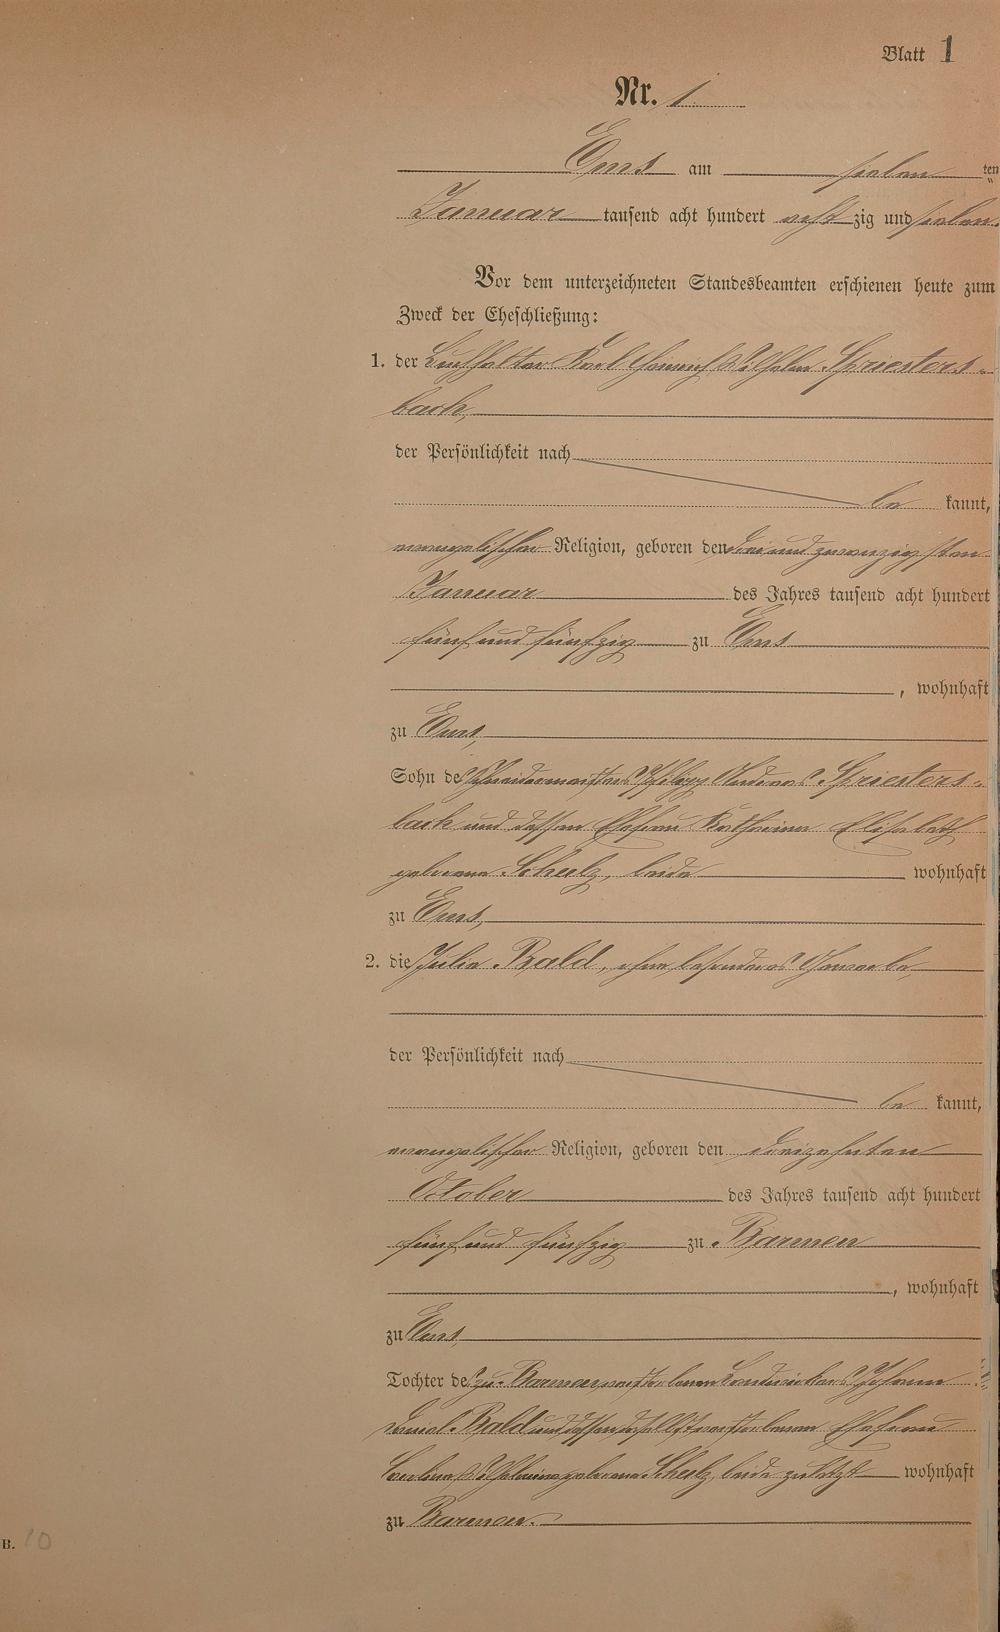 Blatt 1
Nr. 1
Ems am sieben ten
Januar tausend acht hundert acht zig und sieben.
Vor dem unterzeichneten Standesbeamten erschienen heute zum
Zweck der Eheschließung:
1. der Buchhalter Karl Heinrich Wilhelm Spriesters-
bach,
der Persönlichkeit nach
be kannt,
evangelischer Religion, geboren den drei und zwanzigsten
Januar des Jahres tausend acht hundert
fünf und fünfzig zu Ems
, wohnhaft
zu Ems,
Sohn des Schneidermeisters Philipp Andreas Spriesters-
bach und dessen Ehefrau Katharina Elisabeth
geborene Scheelz, beide wohnhaft
zu Ems,
2. die Julie Bald, ohne besonderes Gewerbe,
der Persönlichkeit nach
be kannt,
evangelischer Religion, geboren den dreizehnten
October des Jahres tausend acht hundert
fünf und fünfzig zu Barmen
, wohnhaft
zu Ems,
Tochter des zu Barmen verstorbenen Johann
Daniel Bald und dessen daselbst verstorbenen Ehefrau
Wilhelmine geborene Scheelz, beide zuletzt wohnhaft
zu Barmen.
B. 10